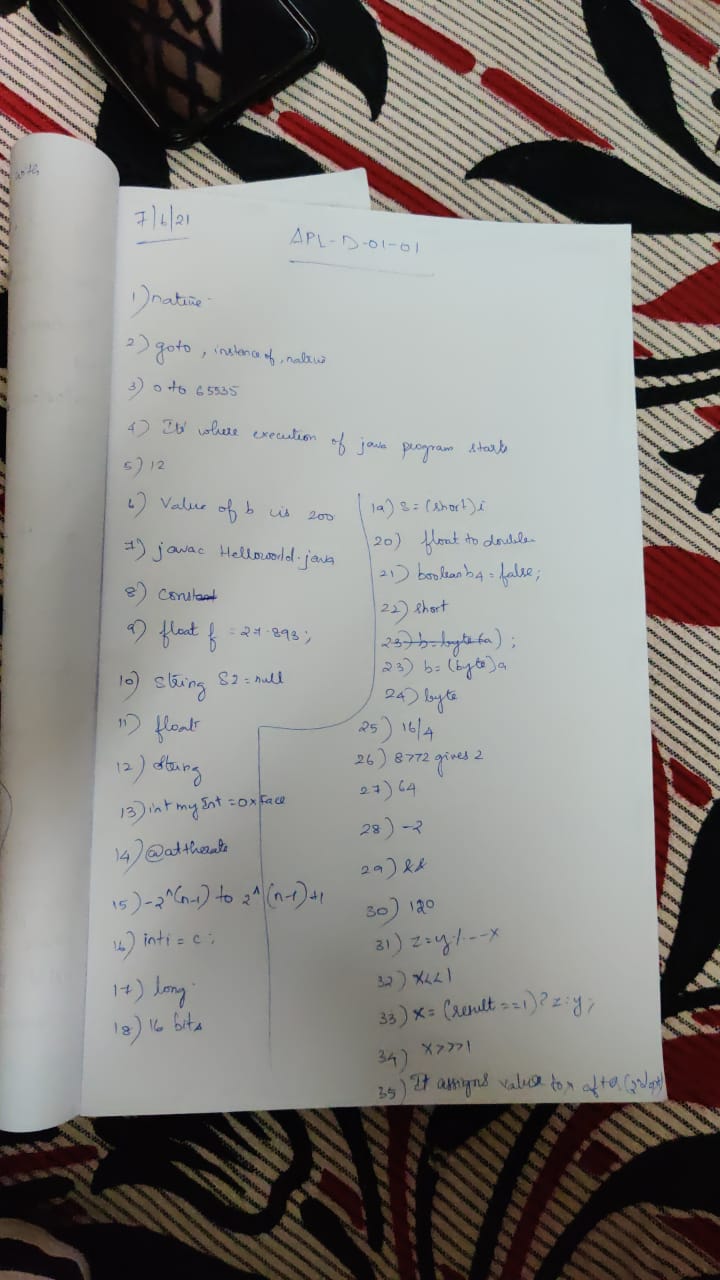 with
7/6/21
APL-D-01-01
1) native
2) goto, instance of, native
3) 0 to 65535
4) It's where execution of java program starts
5) 12
6) Value of b is 200
7) javac Helloworld.java
8) const
9) float f = 27.893;
10) string S2 = null
11) float
12) string
13) int my Int = 0xFace
14) @attherate
15) -2^(n-1) to 2^(n-1)+1
16) int i = c;
17) long.
18) 16 bits
19) S = (short)i
20) float to double
21) boolean b4 = false;
22) short
23) b = byte(a);
23) b = (byte)a
24) byte
25) 16/4
26) 8772 gives 2
27) 64
28) -2
29) &&
30) 120
31) z = y% --x
32) x<<1
33) x = (result == 1) ? z : y;
34) x>>>1
35) It assigns value to x after